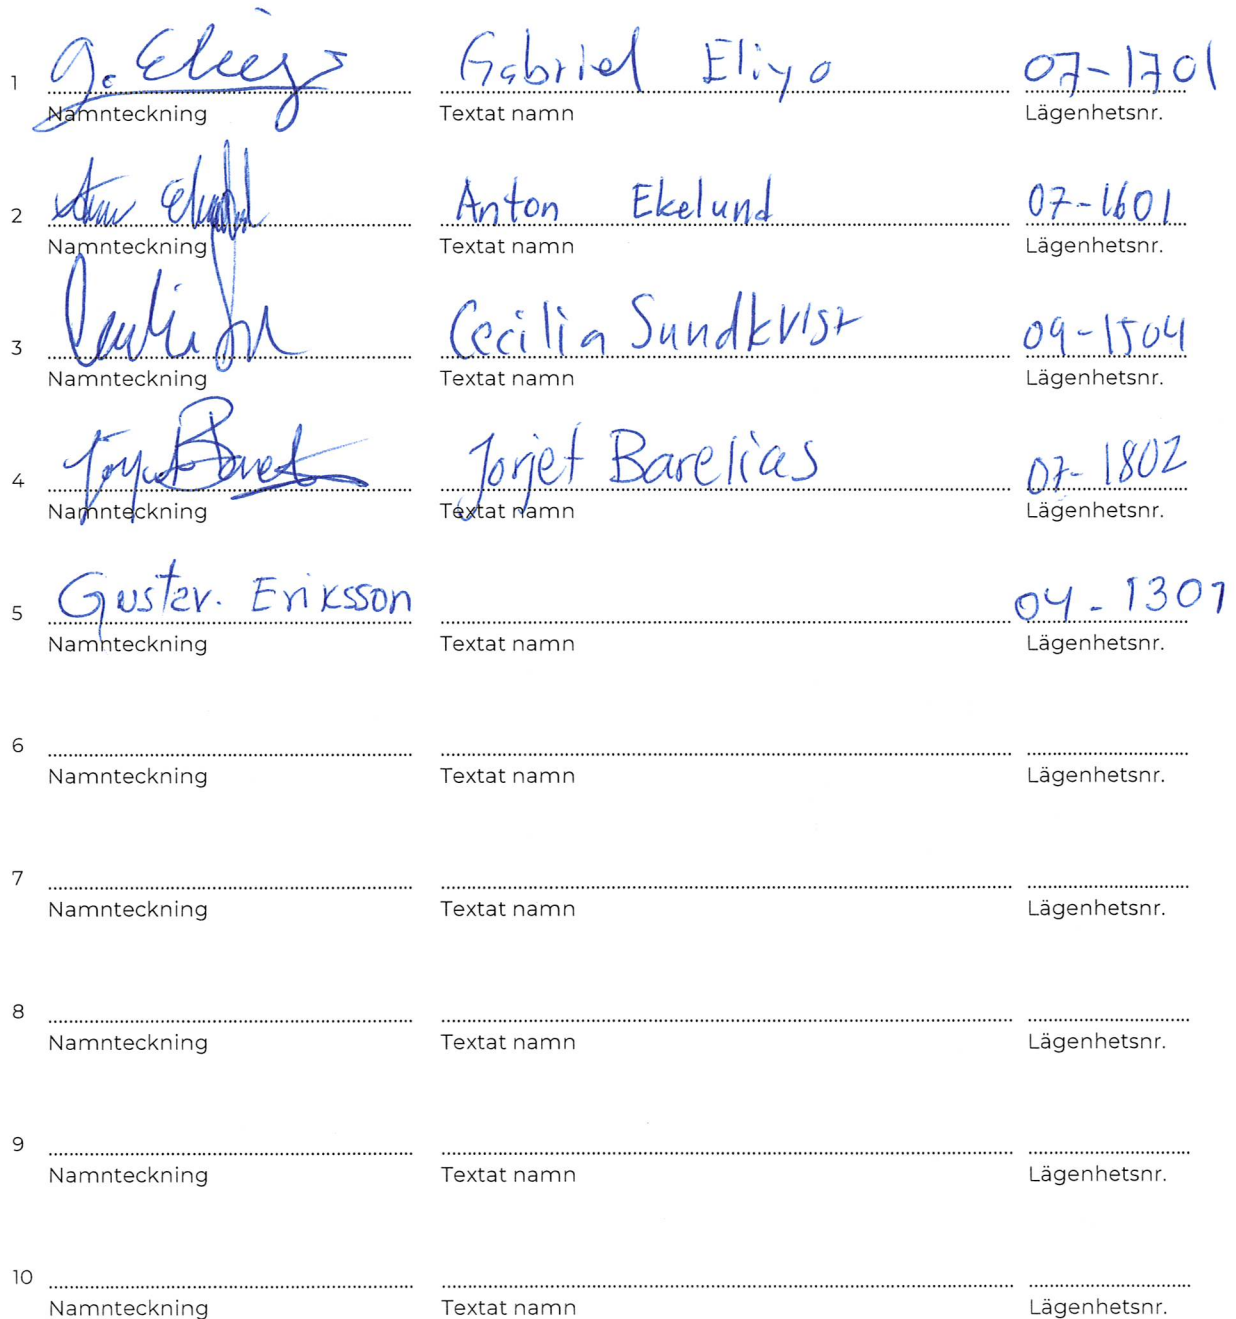 1 G. Eliyo Gabriel Eliyo 07-1701
Namnteckning Textat namn Lägenhetsnr.
2 Anton Ekelund 07-1601
Namnteckning Textat namn Lägenhetsnr.
3 Cecilia Sundkvist 09-1504
Namnteckning Textat namn Lägenhetsnr.
4 Jorjet Barelias 07-1802
Namnteckning Textat namn Lägenhetsnr.
5 Gustav. Eriksson 04-1301
Namnteckning Textat namn Lägenhetsnr.
6
Namnteckning Textat namn Lägenhetsnr.
7
Namnteckning Textat namn Lägenhetsnr.
8
Namnteckning Textat namn Lägenhetsnr.
9
Namnteckning Textat namn Lägenhetsnr.
10
Namnteckning Textat namn Lägenhetsnr.